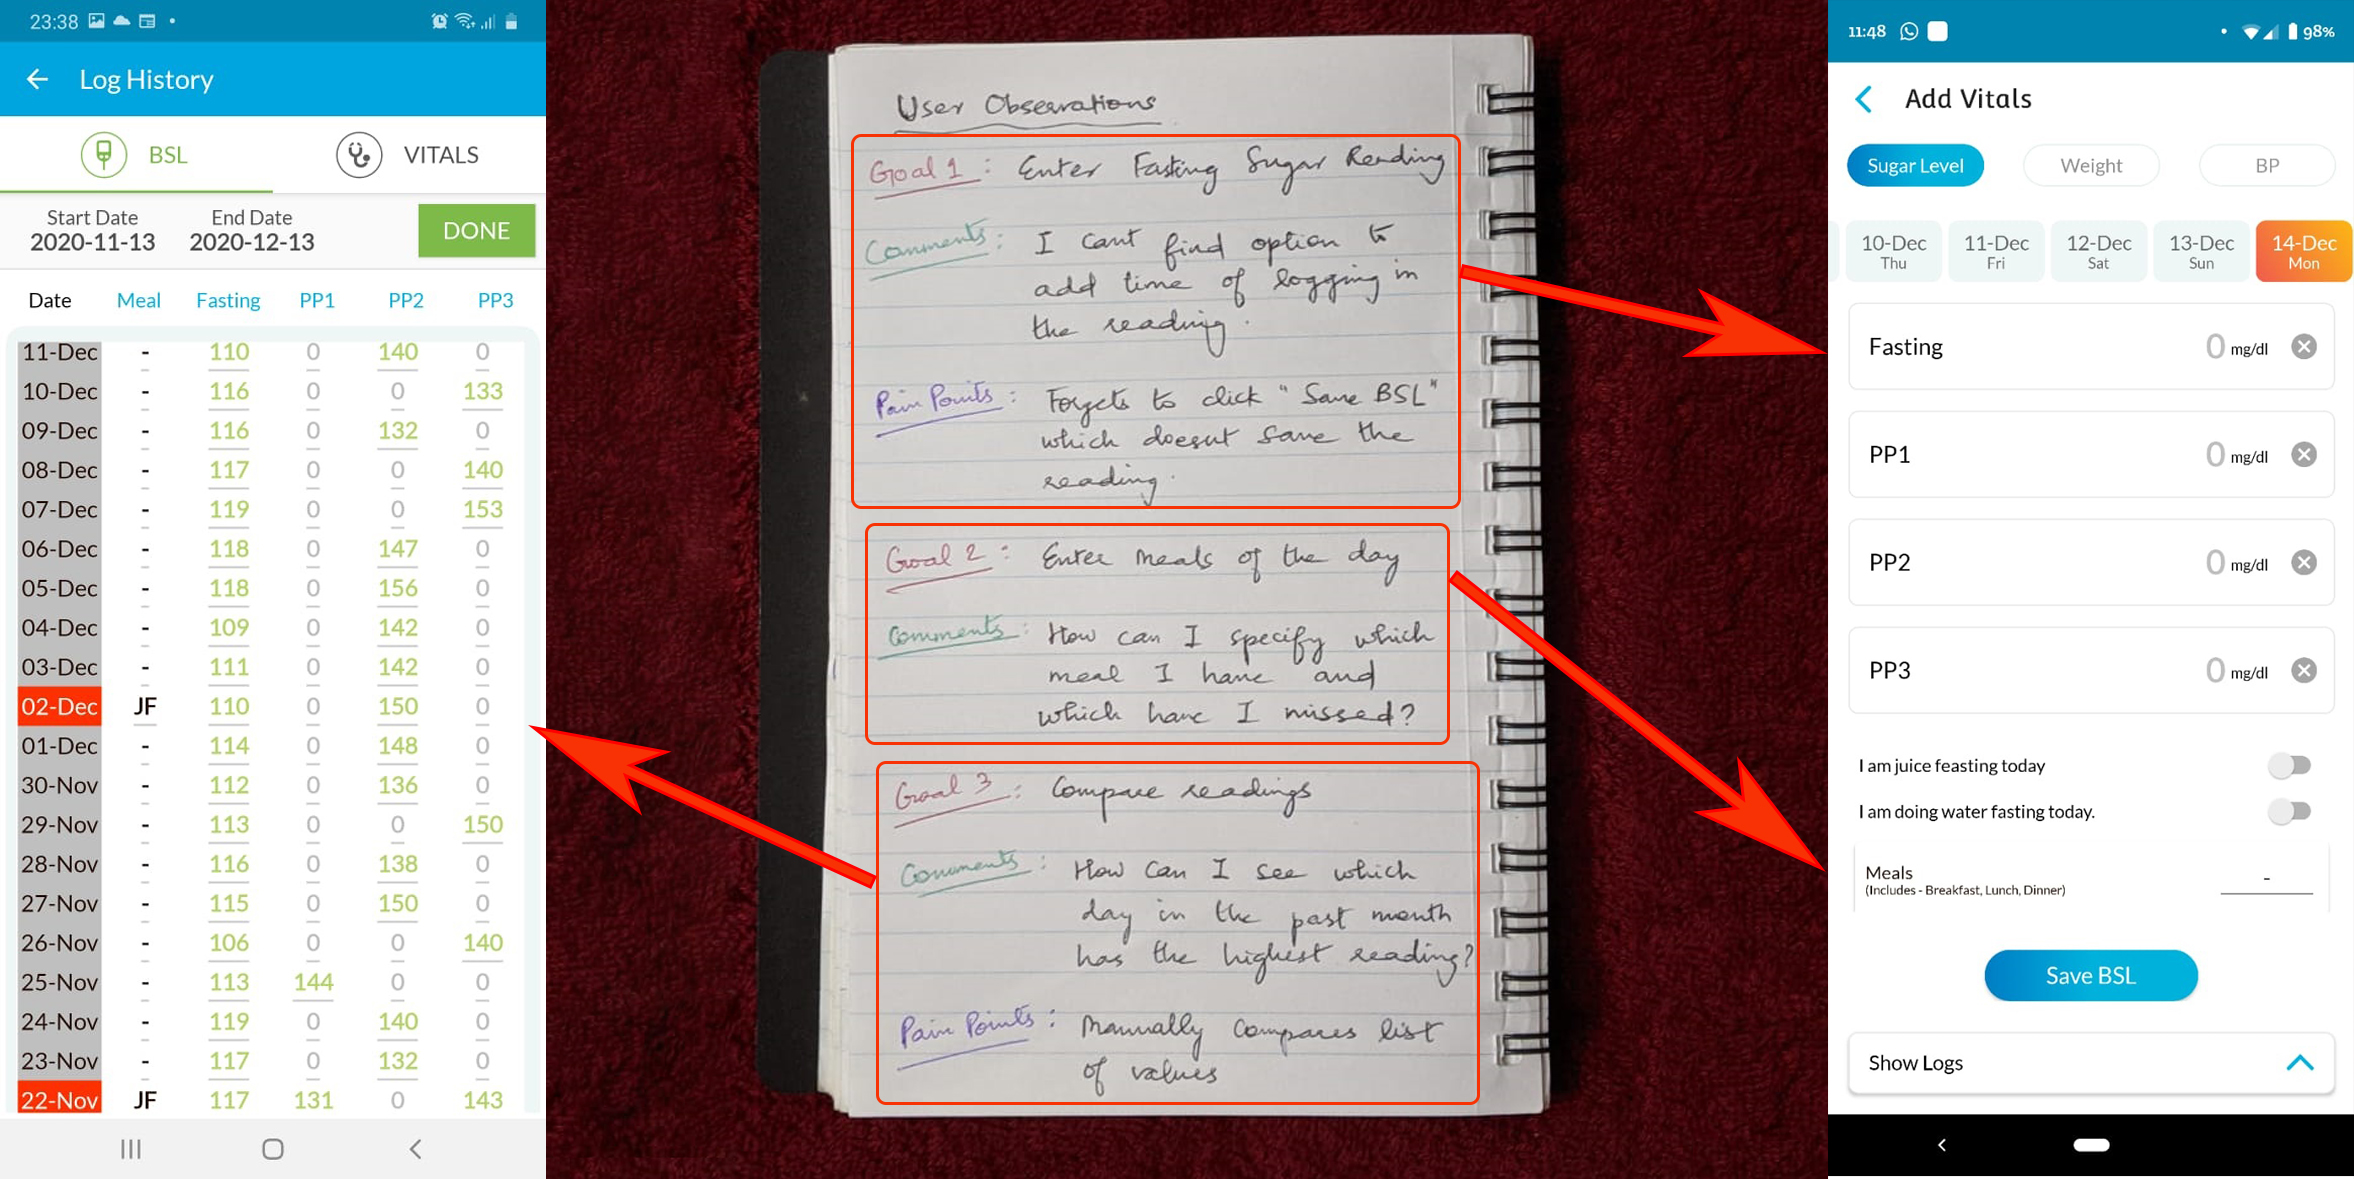 23:38
Log History
BSL
VITALS
Start Date
End Date
2020-11-13
2020-12-13
DONE
Date Meal Fasting PP1 PP2 PP3
11-Dec - 110 0 140 0
10-Dec - 116 0 0 133
09-Dec - 116 0 132 0
08-Dec - 117 0 0 140
07-Dec - 119 0 0 153
06-Dec - 118 0 147 0
05-Dec - 118 0 156 0
04-Dec - 109 0 142 0
03-Dec - 111 0 142 0
02-Dec JF 110 0 150 0
01-Dec - 114 0 148 0
30-Nov - 112 0 136 0
29-Nov - 113 0 0 150
28-Nov - 116 0 138 0
27-Nov - 115 0 150 0
26-Nov - 106 0 0 140
25-Nov - 113 144 0 0
24-Nov - 119 0 140 0
23-Nov - 117 0 132 0
22-Nov JF 117 131 0 143
User Observations
Goal 1 : Enter Fasting Sugar Reading
Comments : I cant find option to
add time of logging in
the reading.
Pain Points : Forgets to click "Save BSL"
which doesnt save the
reading.
Goal 2 : Enter meals of the day
Comments : How can I specify which
meal I have and
which have I missed?
Goal 3 : Compare readings
Comments : How can I see which
day in the past month
has the highest reading?
Pain Points : Manually compares list
of values
11:48
98%
Add Vitals
Sugar Level
Weight
BP
10-Dec 11-Dec 12-Dec 13-Dec 14-Dec
Thu Fri Sat Sun Mon
Fasting 0 mg/dl
PP1 0 mg/dl
PP2 0 mg/dl
PP3 0 mg/dl
I am juice feasting today
I am doing water fasting today.
Meals -
(Includes - Breakfast, Lunch, Dinner)
Save BSL
Show Logs